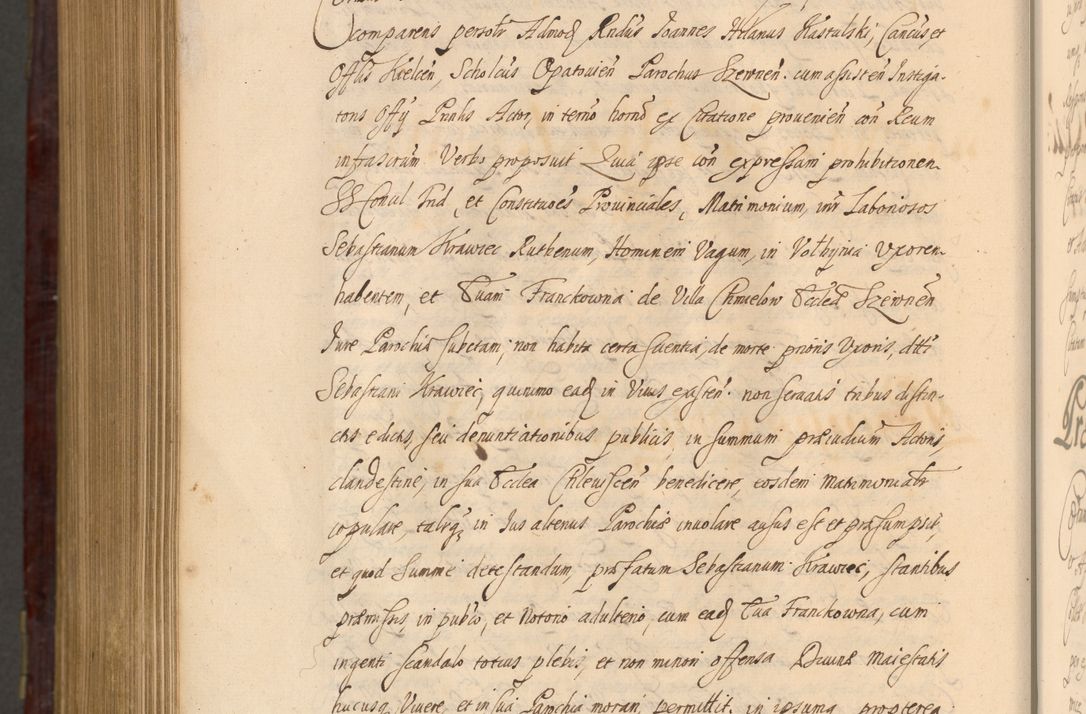 comparens personr Admod Rndus Joannes Atlanus Kastulski, Cancus, et
Offlis Kielcen, Scholcus Opatovien Parochus Szewnen. cum assisten Instiga-
toris Offy Prnlis Actor, in termo horno ex Citatione provenien con Reum
infrascrum Verbo proposuit Quia ipse con expressam prohibitionem
SS Concil Trid, et Constituoes Provinciales, Matrimonium, intr Laboriosos
Sebastianum Krawiec Ruthenum, Hominem Vagum, in Volhynia Uxorem
habentem, et Evam Franckowna de Villa Chmielow Ecclea Szewnen
Jure Parochia subctam; non habita certa scientia, de morte prioris Uxoris, dtti
Sebastiani Krawiec, quinimo ead in Vivis existen. non servatis tribus distin-
ctis edictis, seu denuntiationibus publicis, in summum præiudicium Actoris,
clandestine, in sua Ecclea Chlewiscen benedicere, eosdem Matrimonialr
copulare, talrq, in Jus alterius Parochiæ involare ausus est et præsumpsit,
et quod Summe detestandum, præfatum Sebastianum Krawiec, stantibus
præmissis in pubco, et Notorio adulterio, cum ead Eva Franckowna, cum
ingenti scandalo totius plebis, et non minori offensa Divinæ Maiestatis
hucusq Vivere, et in sua Parochia morari, permittit. in ipsumq propterea